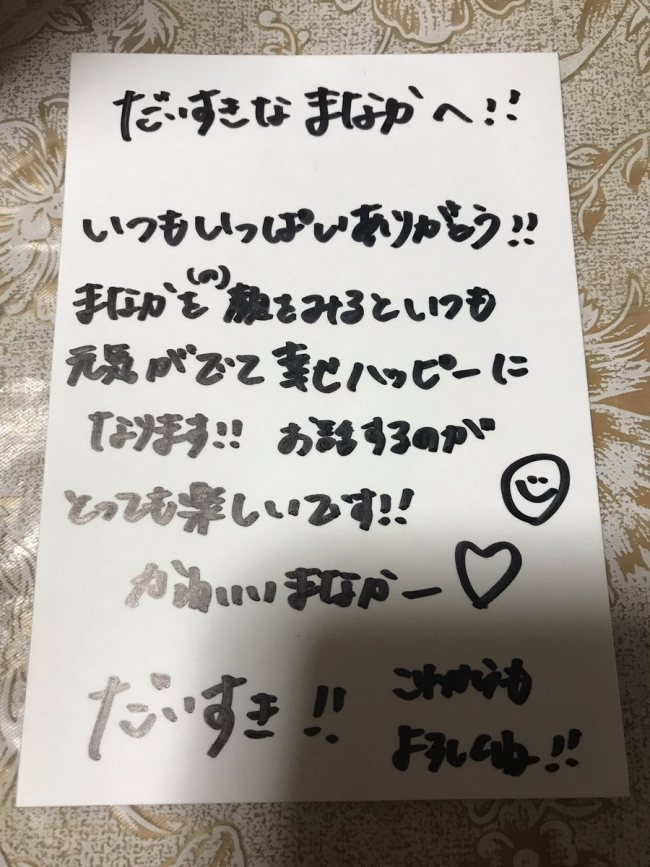 だいすきな まなかへ!!
いつもいっぱいありがとう!!
まなかを(の)顔をみるといつも
元気がでて 幸せハッピーに
なります!! お話するのが
とっても楽しいです!!
かわいいまなかー
だいすき!! これからも
よろしくね!!